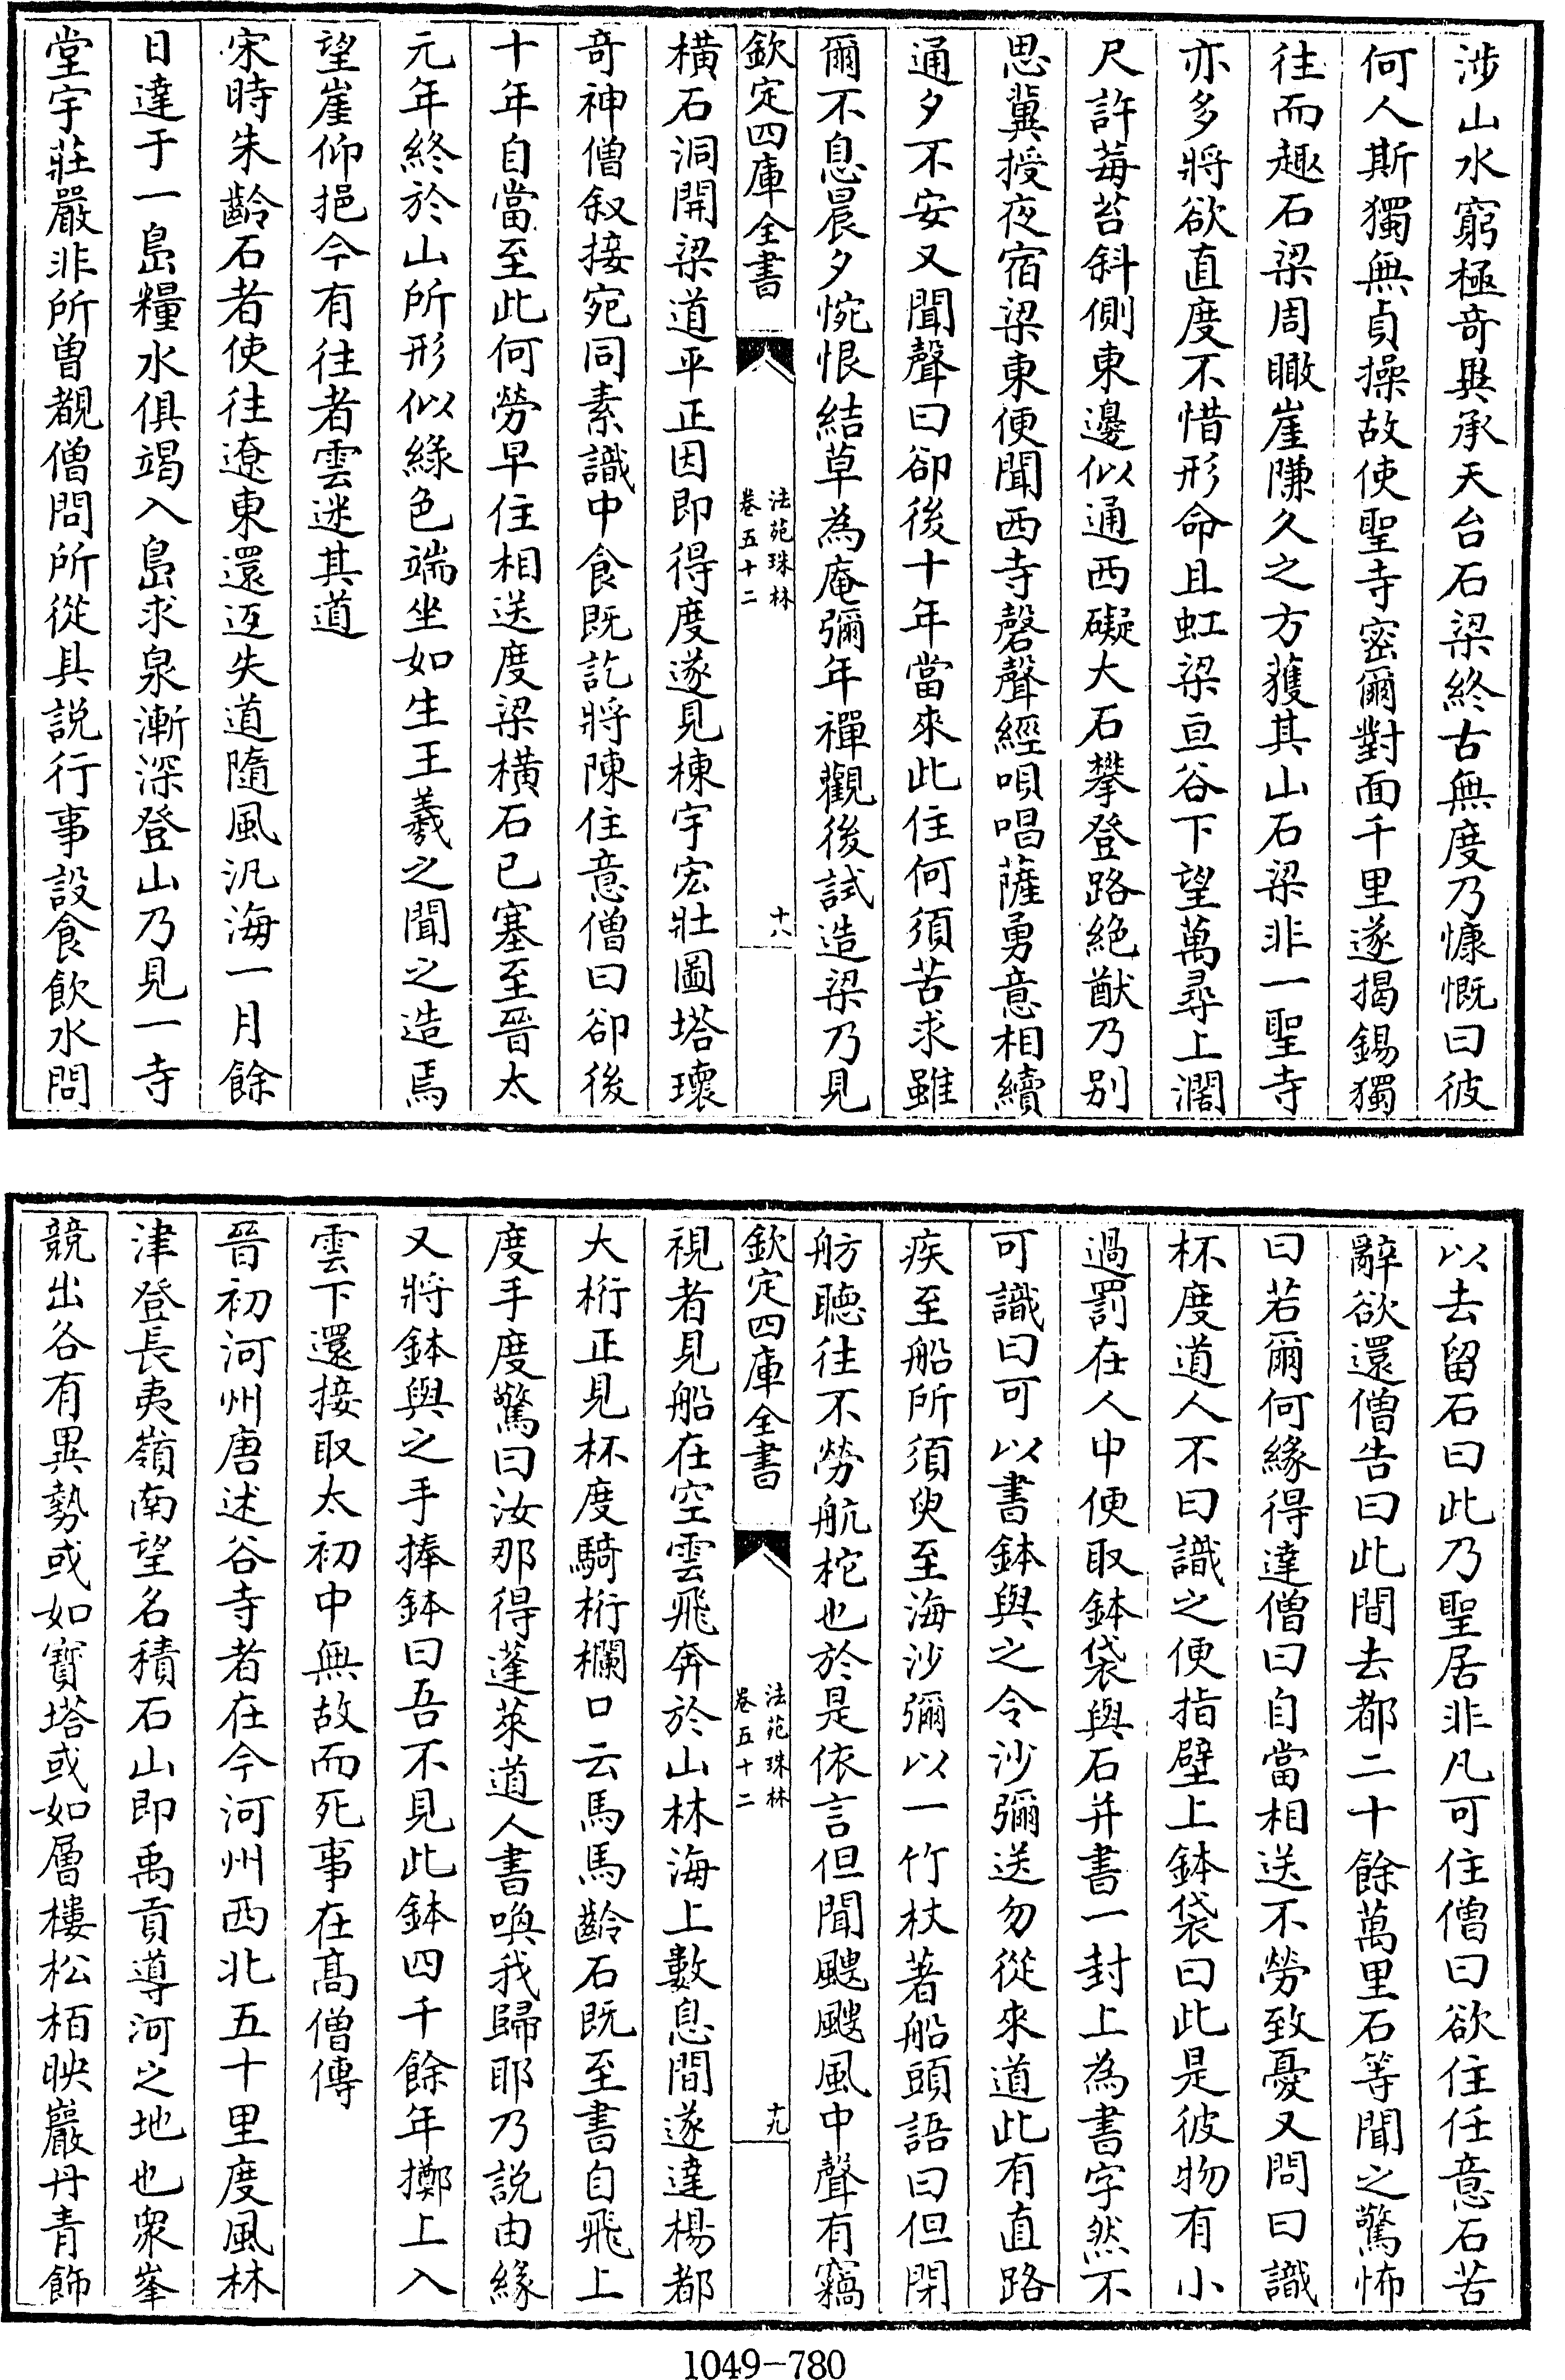 涉山水窮極奇異承天台石梁終古無度乃慷慨曰彼
何人斯獨無貞操故使聖寺密爾對面千里遂揭錫獨
往而趣石梁周瞰崖隒久之方獲其山石梁非一聖寺
亦多將欲直度不惜形命且虹梁亘谷下望萬尋上濶
尺許莓苔斜側東邊似通西礙大石攀登路絶猷乃别
思冀授夜宿梁東便聞西寺磬聲經唄唱薩勇意相續
通夕不安又聞聲曰卻後十年當來此住何須苦求雖
爾不息晨夕惋恨結草為庵彌年禪觀後試造梁乃見
欽定四庫全書
法苑珠林
卷五十二
十八
橫石洞開梁道平正因即得度遂見棟宇宏壯圖塔瓌
奇神僧叙接宛同素識中食既訖將陳住意僧曰卻後
十年自當至此何勞早住相送度梁橫石已塞至晉太
元年終於山所形似緣色端坐如生王羲之聞之造焉
望崖仰挹今有往者雲迷其道
宋時朱齡石者使往遼東還返失道隨風汎海一月餘
日達于一島糧水俱竭入島求泉漸深登山乃見一寺
堂宇莊嚴非所曽覩僧問所從具説行事設食飲水問
以去留石曰此乃聖居非凡可住僧曰欲住任意石苦
辭欲還僧告曰此間去都二十餘萬里石等聞之驚怖
曰若爾何緣得達僧曰自當相送不勞致憂又問曰識
杯度道人不曰識之便指壁上鉢袋曰此是彼物有小
過罰在人中便取鉢袋與石并書一封上為書字然不
可識曰可以書鉢與之令沙彌送勿從來道此有直路
疾至船所須臾至海沙彌以一竹杖著船頭語曰但閉
舫聽往不勞航柁也於是依言但聞颼颼風中聲有竊
欽定四庫全書
法苑珠林
卷五十二
十九
視者見船在空雲飛奔於山林海上數息間遂達楊都
大桁正見杯度騎桁欄口云馬馬齡石既至書自飛上
度手度驚曰汝那得蓬萊道人書喚我歸耶乃説由緣
又將鉢與之手捧鉢曰吾不見此鉢四千餘年擲上入
雲下還接取太初中無故而死事在髙僧傳
晉初河州唐述谷寺者在今河州西北五十里度風林
津登長夷嶺南望名積石山即禹貢導河之地也衆峯
競出各有異勢或如寳塔或如層樓松栢映巖丹青飾
1049-780